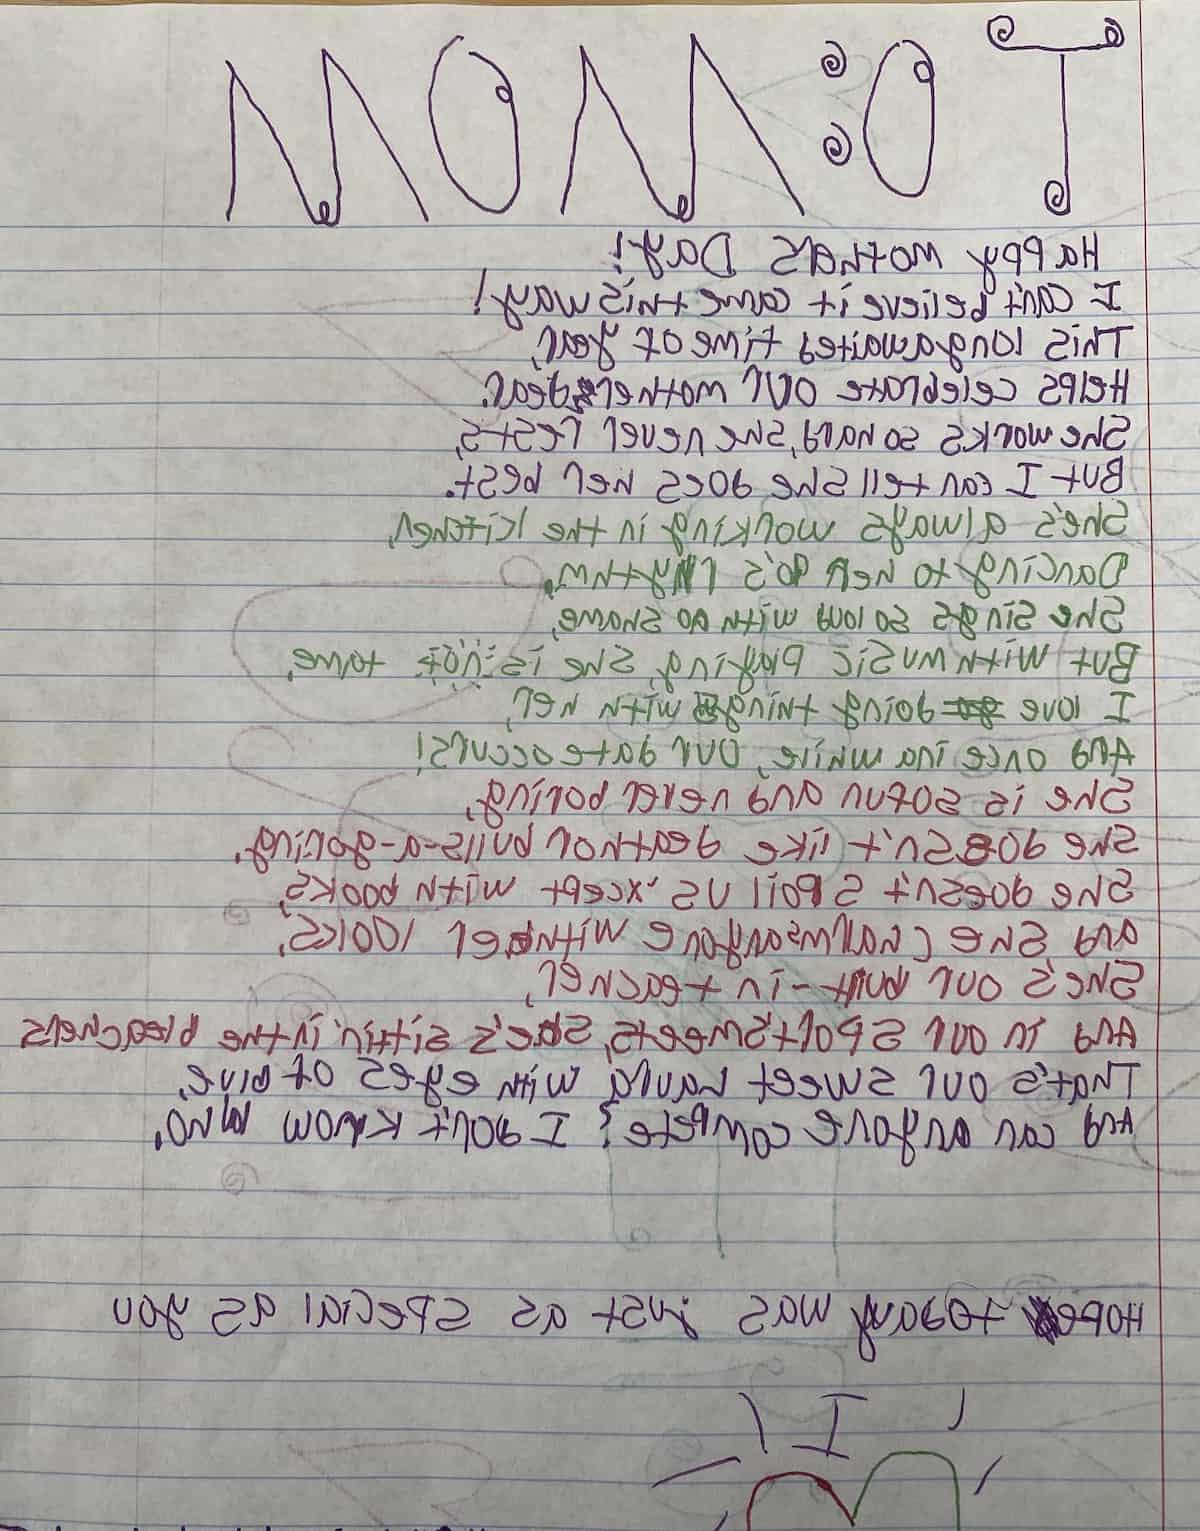 TO: MOM
Happy mothers Day!
I can't believe it came this way!
This long awaited time of year,
Helps celebrate our mothers dear.
She works so hard, she never rests,
But I can tell she does her best.
She's always working in the kitchen,
Dancing to her 90's rhythm.
She sings so loud with no shame,
But with music playing, she is not tame.
I love doing things with her,
And once in a while, our date occurs!
She is so fun and never boring,
She doesn't like death or bulls-a-goring.
She doesn't spoil us 'xcept with books,
and she charms anyone with her looks.
She's our built-in teacher,
And in our sports meets, she's sittin' in the bleachers
That's our sweet Laura, with eyes of blue,
And can anyone compete? I don't know who.
Hope today was just as special as you
I